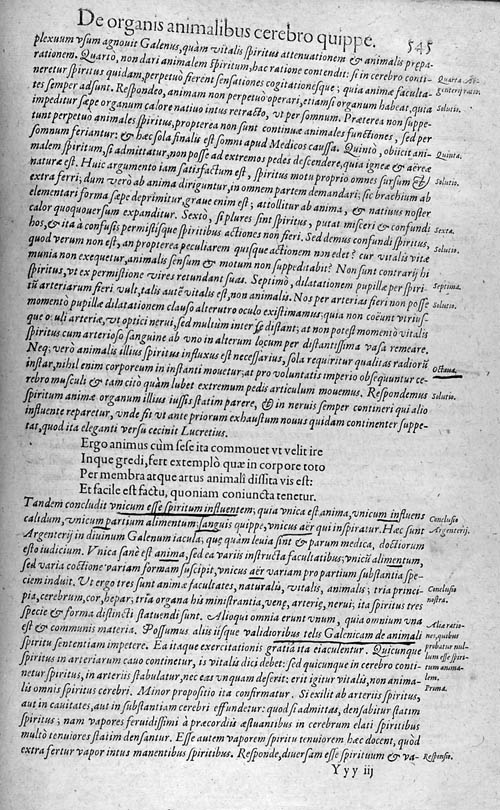 De organis animalibus cerebro quippe. 545
plexuum vsum agnouit Galenus, quàm vitalis spiritus attenuationem & animalis præpa-
rationem. Quartò, non dari animalem spiritum, hac ratione contendit: si in cerebro conti- Quarta Ar-
neretur spiritus quidam, perpetuò fierent sensationes cogitationesque; quia animæ faculta- genterij ratio.
tes semper adsunt. Respondeo, animam non perpetuò operari, etiamsi organum habeat, quia Solutio.
impeditur sæpe organum calore natiuo intus retracto, vt per somnum. Præterea non suppe-
tunt perpetuò animales spiritus, propterea non sunt continuæ animales functiones, sed per
somnum feriantur: & hæc sola finalis est somni apud Medicos caussa. Quintò, obiicit ani- Quinta.
malem spiritum, si admittatur, non posse ad extremos pedes descendere, quia igneæ & aëreæ
naturæ est. Huic argumento iam satisfactum est, spiritus motu proprio omnes sursum & Solutio.
extra ferri; dum verò ab anima diriguntur, in omnem partem demandari; sic brachium ab
elementari forma sæpe deprimitur, graue enim est; attollitur ab anima, & natiuus noster
calor quoquouersum expanditur. Sextò, si plures sint spiritus, putat misceri & confundi Sexta.
hos, & ita à confusis permistisque spiritibus actiones non fieri. Sed demus confundi spiritus, Solutio.
quod verum non est, an propterea peculiarem quisque actionem non edet? cur vitalis vitæ
munia non exequetur, animalis sensum & motum non suppeditabit? Non sunt contrarij hi
spiritus, vt ex permistione vires retundant suas. Septimò, dilatationem pupillæ per spiri- Septima.
tũ arteriarum fieri vult, talis autẽ vitalis est, non animalis. Nos per arterias fieri non posse Solutio.
momentò pupillæ dilatationem clauso alterutro oculo existimamus; quia non coëunt vtrius-
que oculi arteriæ, vt optici nerui, sed multùm inter se distant; at non potest momentò vitalis
spiritus cum arterioso sanguine ab vno in alterum locum per distantissima vasa remeare.
Neque verò animalis illius spiritus influxus est necessarius, sola requiritur qualitas radiorũ Octaua.
instar, nihil enim corporeum in instanti mouetur; at pro voluntatis imperio obsequuntur ce-
rebro musculi & tam citò quàm lubet extremum pedis articulum mouemus. Respondemus Solutio.
spiritum animæ organum illius iussis statim parere, & in neruis semper contineri qui alio
influente reparetur, vnde fit vt ante priorem exhaustum nouus quidam continenter suppe-
tat, quod ita eleganti versu cecinit Lucretius.
Ergo animus cùm sese ita commouet vt velit ire
Inque gredi, fert extemplò quæ in corpore toto
Per membra atque artus animali dissita vis est:
Et facile est factu, quoniam coniuncta tenetur.
Tandem concludit vnicum esse spiritum influentem; quia vnica est anima, vnicum influens Conclusio
calidum, vnicum partium alimentum; sanguis quippe, vnicus aër qui inspiratur. Hæc sunt Argenterij.
Argenterij in diuinum Galenum iacula; quæ quàm leuia sint & parum medica, doctiorum
esto iudicium. Vnica sanè est anima, sed ea variis instructa facultatibus; vnicũ alimentum,
sed varia coctione variam formam suscipit, vnicus aër variam pro partium substantia spe-
ciem induit. Vt ergo tres sunt animæ facultates, naturalis, vitalis, animalis; tria princi- Conclusio
pia, cerebrum, cor, hepar; tria organa his ministrantia, venæ, arteriæ, nerui; ita spiritus tres nostra.
specie & forma distincti statuendi sunt. Alioqui omnia erunt vnum, quia omnium vna
est & communis materia. Possumus aliis iisque validioribus telis Galenicam de animali Aliæ ratio-
spiritu sententiam impetere. Ea itaque exercitationis gratia ita eiaculentur. Quicunque nes, quibus
spiritus in arteriarum cauo continetur, is vitalis dici debet: sed quicunque in cerebro conti- probatur nul-
netur spiritus, in arteriis stabulatur, nec eas vnquam deserit: erit igitur vitalis, non anima- lum esse spiri-
lis omnis spiritus cerebri. Minor propositio ita confirmatur. Si exilit ab arteriis spiritus, tum anima-
aut in cauitates, aut in substantiam cerebri effundetur: quod si admittas, densabitur statim lem.
spiritus; nam vapores feruidissimi à præcordiis æstuantibus in cerebrum elati spiritibus Prima.
multò tenuiores statim densantur. Esse autem vaporem spiritu tenuiorem hæc docent, quòd
extra fertur vapor intus manentibus spiritibus. Responde, diuersam esse spirituum & va- Responsio.
Yyy iij